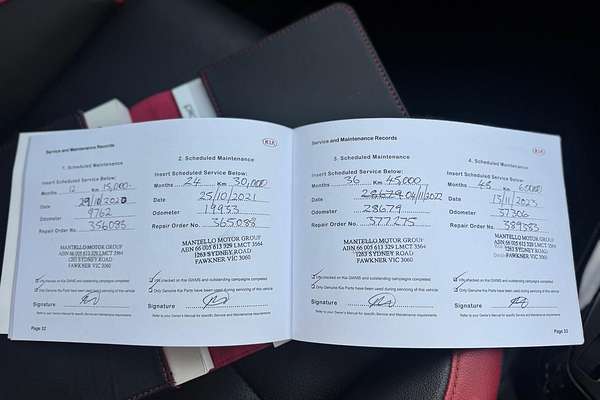 Service and Maintenance Records
KIA
KIA
1. Scheduled Maintenance
Insert Scheduled Service Below:
Months 12 Km 15,000
Date 29/10/2020
Odometer 9762
Repair Order No. 356083
MANTELLO MOTOR GROUP
ABN 66 005 613 329 LMCT 3564
1263 SYDNEY ROAD
FAWKNER VIC 3060
checked on the GWMS and outstanding campaigns completed
Only Genuine Kia Parts have been used during servicing of this vehicle
Signature
Refer to your Owner's Manual for specific Service and Maintenance requirements
Page 32
2. Scheduled Maintenance
Insert Scheduled Service Below:
Months 24 Km 30,000
Date 25/10/2021
Odometer 19933
Repair Order No. 365088
MANTELLO MOTOR GROUP
ABN 66 005 613 329 LMCT 3564
1263 SYDNEY ROAD
FAWKNER VIC 3060
checked on the GWMS and outstanding campaigns completed
Only Genuine Kia Parts have been used during servicing of this vehicle
Signature
Refer to your Owner's Manual for specific Service and Maintenance requirements
3. Scheduled Maintenance
Insert Scheduled Service Below:
Months 36 Km 45,000
Date 28679 04/11/2022
Odometer 28679
Repair Order No. 377275
MANTELLO MOTOR GROUP
ABN 66 005 613 329 LMCT 3564
1263 SYDNEY ROAD
FAWKNER VIC 3060
checked on the GWMS and outstanding campaigns completed
Only Genuine Kia Parts have been used during servicing of this vehicle
Signature
Refer to your Owner's Manual for specific Service and Maintenance requirements
4. Scheduled Maintenance
Insert Scheduled Service Below:
Months 48 Km 60000
Date 15/11/2023
Odometer 37306
Repair Order No. 389383
MANTELLO MOTOR GROUP
ABN 66 005 613 329 LMCT 3564
1263 SYDNEY ROAD
FAWKNER VIC 3060
checked on the GWMS and outstanding campaigns completed
Only Genuine Kia Parts have been used during servicing of this vehicle
Signature
Refer to your Owner's Manual for specific Service and Maintenance requirements
Page 33